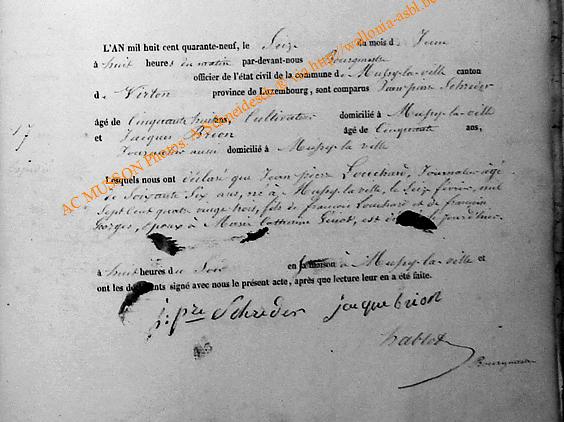 L'AN mil huit cent quarante-neuf, le Seize du mois de Juin
à huit heures du matin par-devant-nous Bourgmestre
officier de l'état civil de la commune de Mussy-la-ville canton
de Virton province de Luxembourg, sont comparus Jean pierre Schreder
âgé de Cinquante huit ans, Cultivateur domicilié à Mussy-la-ville
17
et Jacques Brion âgé de Cinquante ans,
domicilié à Mussy la ville
Lesquels nous ont déclaré que Jean pierre Louchard, Journalier âgé
de Soixante Six ans, né à Mussy-la-ville, le Seize février mil
Sept Cent quatre vingt trois, fils de françois Louchard et de
Georges, époux de Marie Catherine est le jour d'hier
à huit heures du Soir en sa maison à Mussy-la-ville et
ont les déclarants signé avec nous le présent acte, après que lecture leur en a été faite.
j: pre Schreder jacque brion
hablot
Bourgmestre
AC MUSSON Photos
http://wallonia-asbl.be